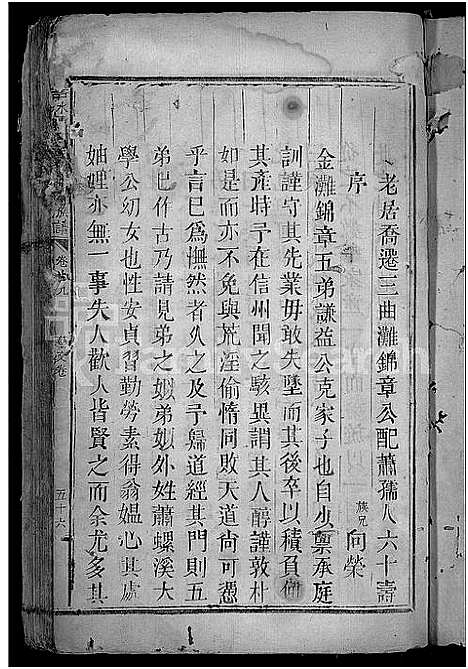 老居喬遷三曲灘錦章公配蕭孺人六十壽
序
族兄 向榮
金灘錦章五弟謙益公克家子也自少稟承庭
訓謹守其先業毋敢失墜而其後卒以積負傾
其產時予在信州聞之駭異謂其人醇謹敦朴
如是而亦不免與荒淫偷惰同敗天道尚可憑
乎言已為憮然者久之及予歸道經其門則五
弟已作古乃請見弟之嫂弟嫂外姓蕭螺溪大
學公幼女也性安貞習勤勞素得翁媼心其處
妯娌亦無一事失人歡人皆賢之而余尤多其
五十六